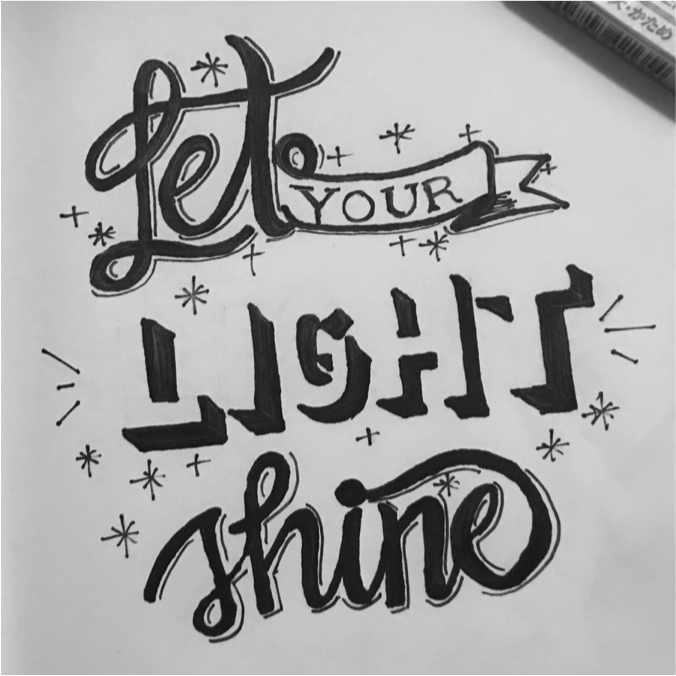 Let
YOUR
LIGHT
shine